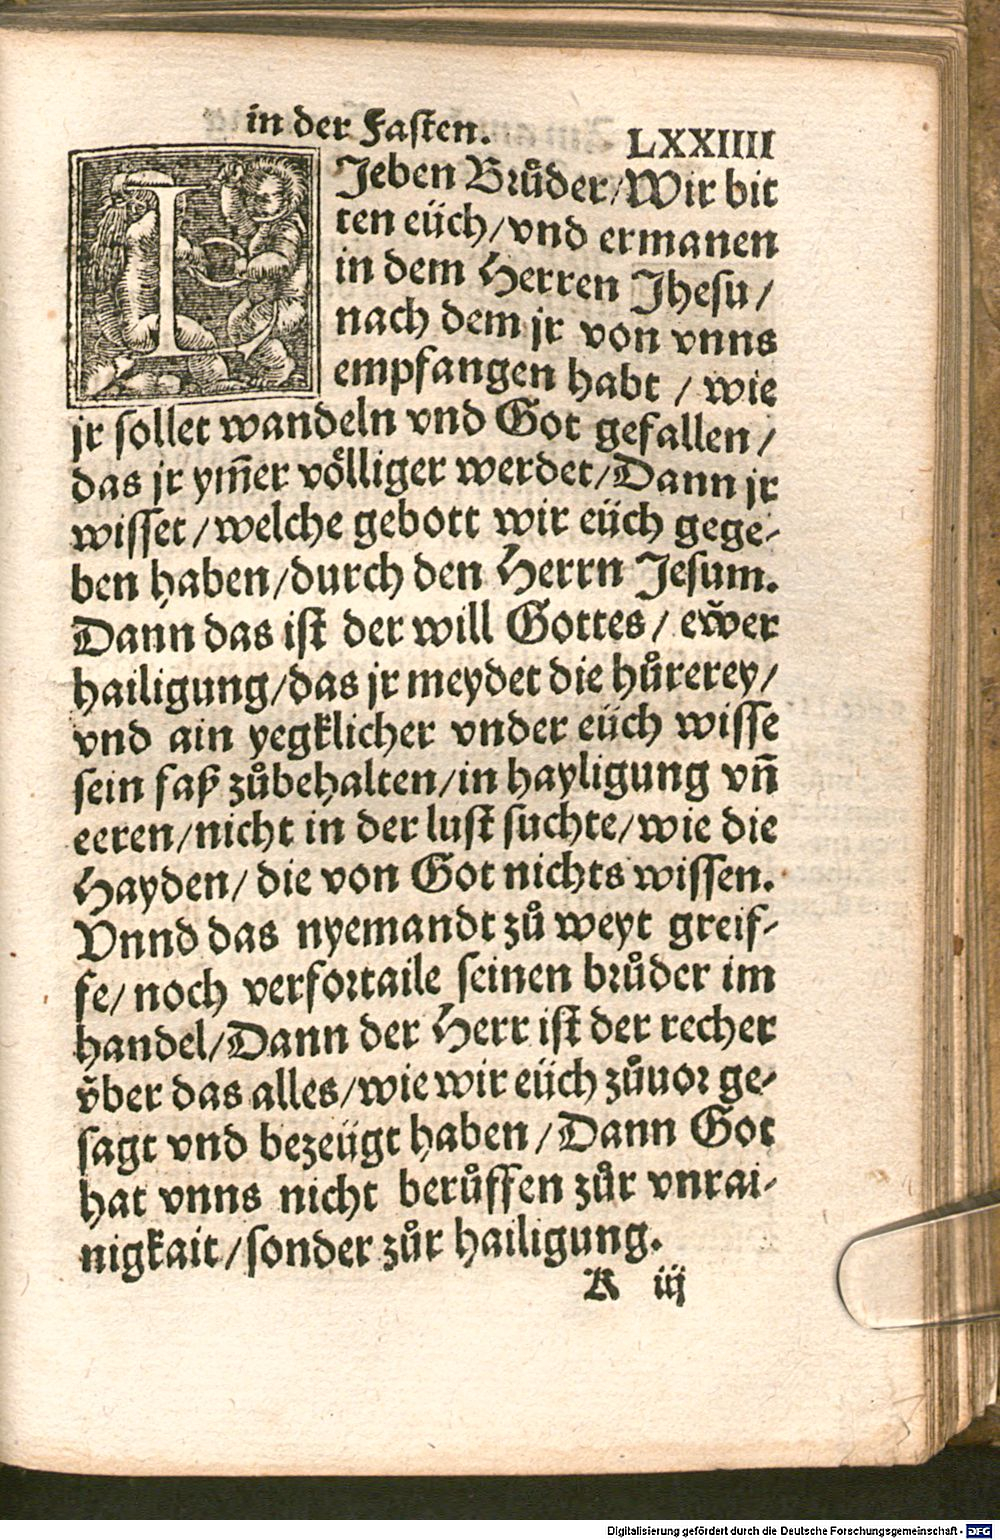 in der Fasten.
LXXIIII
IJeben Brůder/Wir bit
ten eüch/vnd ermanen
in dem Herren Jhesu/
nach dem jr von vnns
empfangen habt / wie
jr sollet wandeln vnd Got gefallen/
das jr ym̄er völliger werdet/Dann jr
wisset/welche gebott wir eüch gege-
ben haben/durch den Herrn Jesum.
Dann das ist der will Gottes/ ew̆er
hailigung/das jr meydet die hůrerey/
vnd ain yegklicher vnder eüch wisse
sein faß zůbehalten/in hayligung vn̄
eeren/nicht in der lust suchte/wie die
Hayden/ die von Got nichts wissen.
Vnnd das nyemandt zů weyt greif-
fe/noch verfortaile seinen brůder im
handel/Dann der Herr ist der recher
v̆ber das alles/wie wir eüch zůuor ge-
sagt vnd bezeügt haben/Dann Got
hat vnns nicht berůffen zůr vnrai-
nigkait/sonder zůr hailigung.
K iij
Digitalisierung gefördert durch die Deutsche Forschungsgemeinschaft - DFG